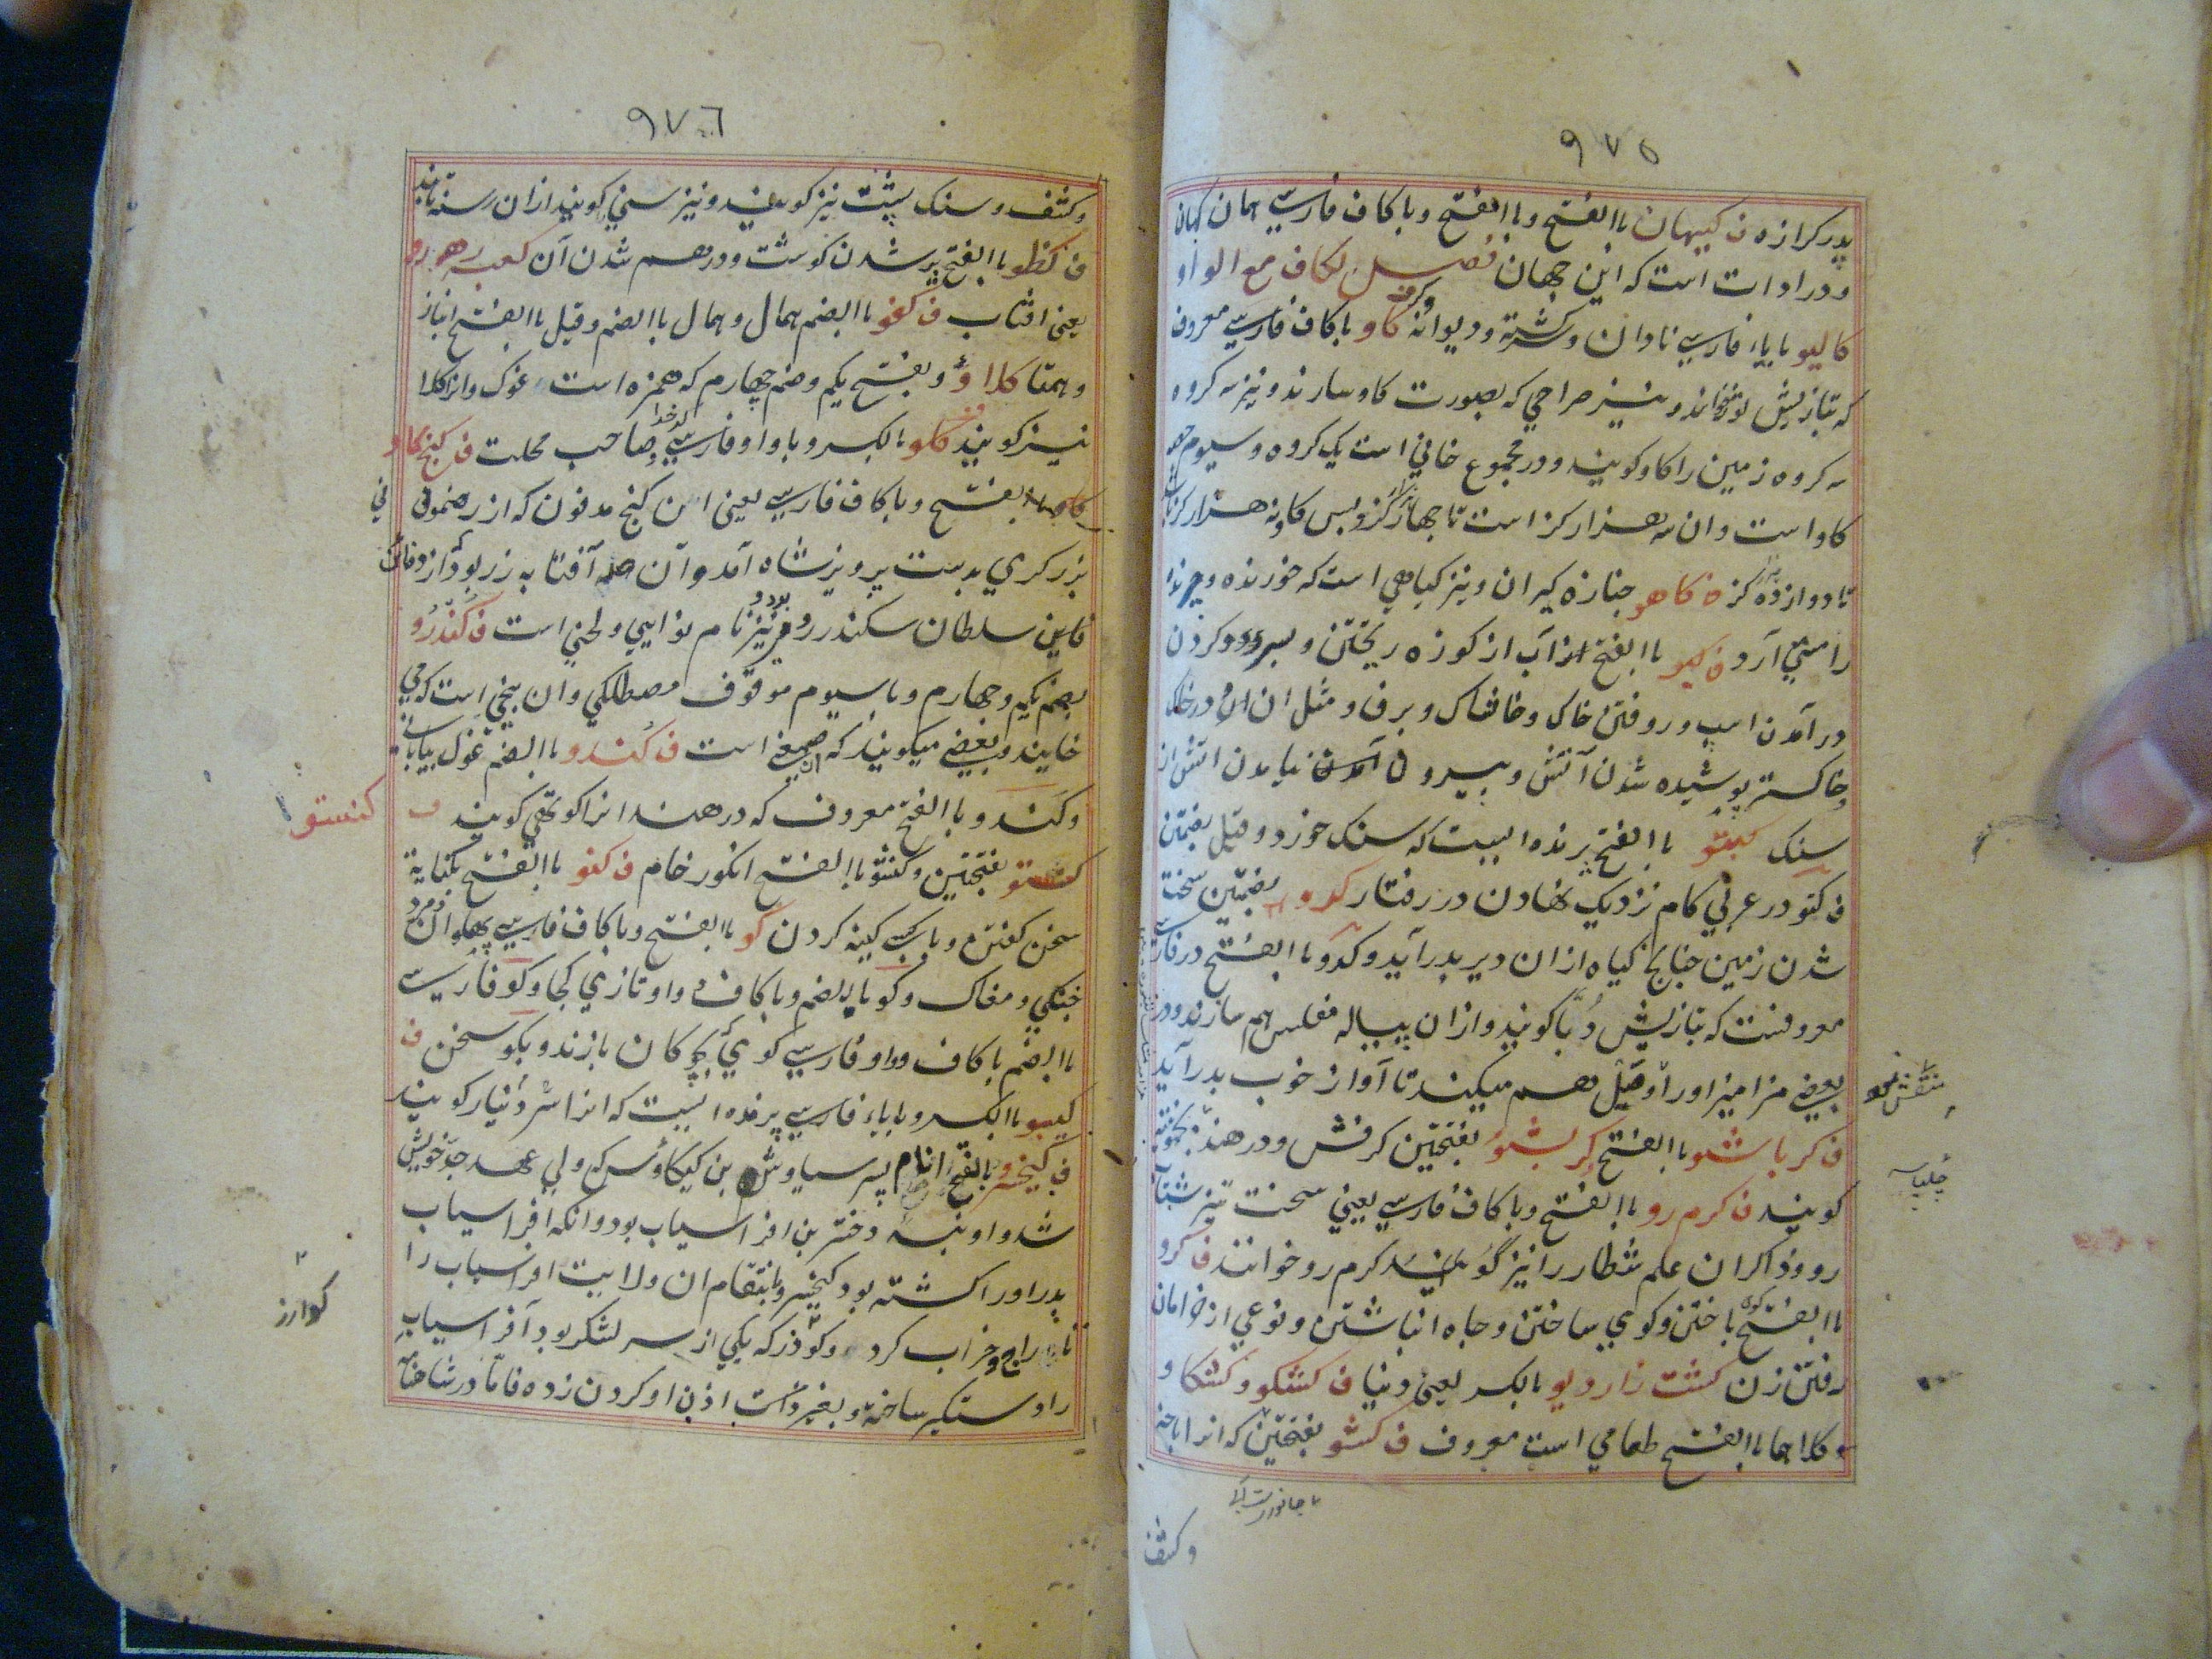 ٩٧٥
پدر کرازه ف کیهان باالفتح و باالفتح و باکاف فارسی همان کهان
و در ادات است که این جهان فصل لکاف مع الواو
کالیو بابیاء فارسی نادان و سرکشته و دیوانه کاو باکاف فارسی معروف
که بتازیش ثور خوانند و نیز صراحی که بصورت کاو سازند و نیز سه کروه
سه کروه زمین را کاو کویند و در مجموع خانی است یک کروه و سیوم حصه
کاو است و ان سه هزار کز است تا چهار هزار کز و بس کاو نه هزار کز باشد
تا دوازده هزار کز ف کاهو جنازه کیران و نیز کیاهی است که خورنده
را مستی آرد ف کبو باالفتح آب از کوزه ریختن و کردن
در آمدن اسپ و روفتن خاک و خاشاک و برف و مثل ان در خاک
و خاکستر پوشیده شدن آتش و بیرون نیامدن آتش از
سنک کبتو باالفتح پرنده ایست که سنک خورد و قیل بضمتین
ف کتو در عربی کام نزدیک نهادن در رفتار کدو بضمتین سخت
شدن زمین چنانچه کیاه ازان دیر بدر آید و کدو باالفتح در فارسی
معروفست که بتازیش دبا کویند و ازان پیاله مفلس هم سازند و در
بعضی مزامیر اورا وصل هم میکنند تا آواز خوب بدر آید
ف کرباشو باالفتح کربشو بفتحتین کرفش و در هند
کویند ف کرم رو باالفتح و باکاف فارسی یعنی سخت تیز شتاب
رو و ذاکران علم شطار را نیز کویند کرم رو خوانند ف کرو
باالفتح باختن و کوی ساختن و چاه انباشتن و نوعی از خرامان
رفتن زن کشت زار دیو بالکسر یعنی دنیا ف کشکو و کشکاو
و کلاهما باالفتح طعامی است معروف ف کشو بفتحتین که انرا باخه
چلپاسه
وکشف
٩٧٦
و کشف و سنک پشت نیز کویند و نیز سنی کویند ازان رسنه تابند
ف کظو باالفتح پر شدن کوشت و درهم شدن آن کعبه رهرو
یعنی افتاب ف کفو باالضم همال و همال باالضم و قیل باالفتح انباز
و همتا کلاؤ و بفتح یکم و ضم چهارم که همزه است غوک و انرا کلا
نیز کویند ف کلو بالکسر و باواو فارسی کدخدا صاحب محلت ف کنج کاو
کاو بفتح و باکاف فارسی یعنی ان کنج مدفون که از رهنمونی
بزرکری بدست پرویز شاه آمد و آن صد آفتابه زر بود از دفائن
فاین سلطان سکندر رومی بود و نیز نام نوایی و لحنی است ف کندرو
بضم یکم و چهارم و باسیوم موقوف مصطلکی و ان بیخی است که می
خایند و بعضی میکویند که ان صمغی است ف کندو باالضم غول بیابانی
و کندو باالفتح معروف که در هند انرا کوتهی کویند ف کنستو
بفتحتین و کنشو باالفتح انکور خام ف کنو باالفتح بکنایه
سخن کفتن و باکسی کینه کردن کو باالفتح و باکاف فارسی پهلوان و مرد
جنکی و مغاک و کو باالضم و باکاف و واو تازی کجا و کو فارسی
باالضم باکاف و واو فارسی کوی که بچوکان بازند و بکو سخن ف
کیبو باالکسر و بابیاء فارسی پرنده ایست که انرا سردنیار کویند
ف کیخسرو باالفتح نام پسر سیاوش بن کیکاوس که ولی عهد جد خویش
شد و او نبسه دختر بن افراسیاب بود و انکه افراسیاب
پدر اورا کشته بود کیخسرو بانتقام ان ولایت افراسیاب را
تاراج و خراب کرد و کوذرز که یکی از سر لشکر بود آفراسیاب
را دستکیر ساخته و بغیر خواست اذن او کردن زده فاما در شاهنامه
کوارز